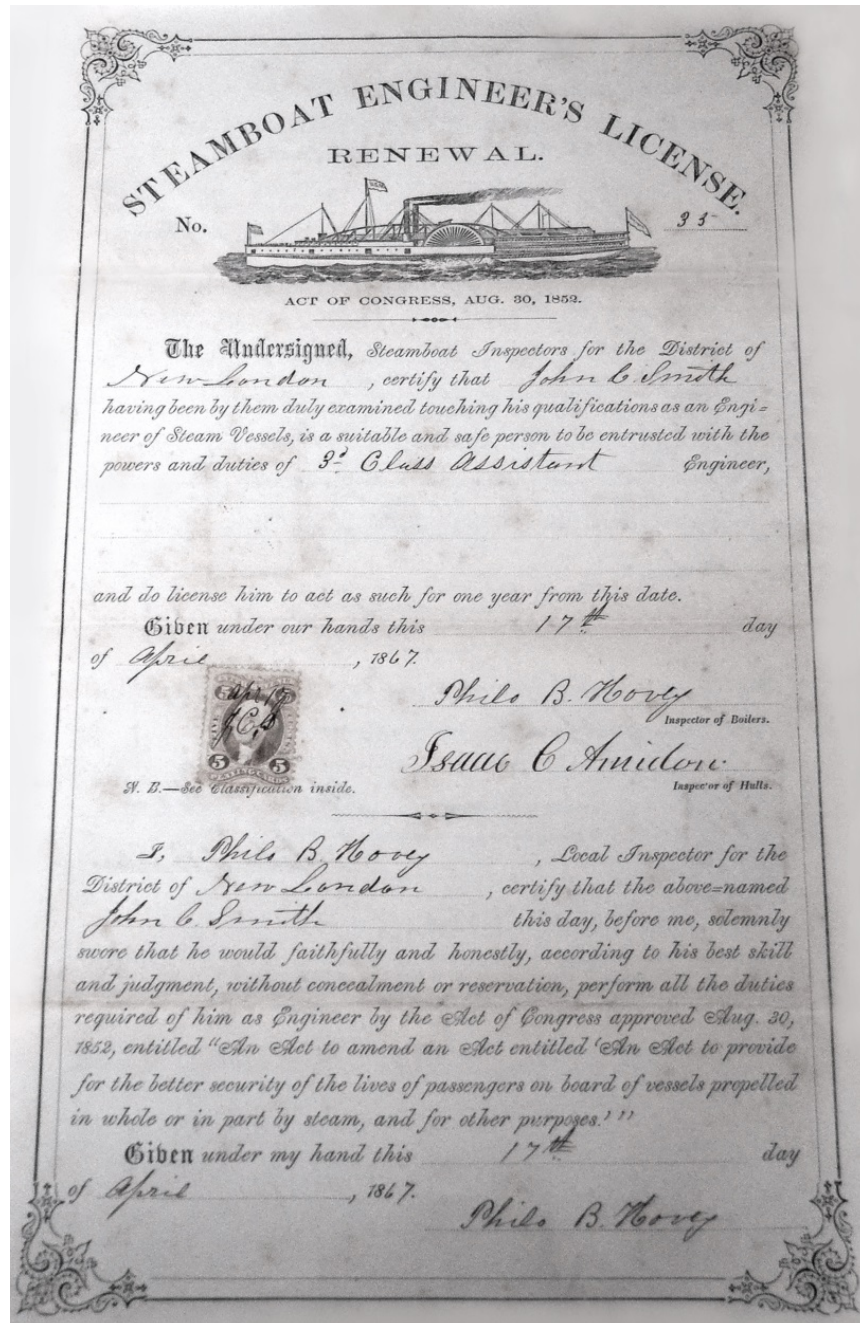 STEAMBOAT ENGINEER'S LICENSE.
RENEWAL.
No. 35
ACT OF CONGRESS, AUG. 30, 1852.
The Undersigned, Steamboat Inspectors for the District of
New London, certify that John C Smith
having been by them duly examined touching his qualifications as an Engi=
neer of Steam Vessels, is a suitable and safe person to be entrusted with the
powers and duties of 3d Class Assistant Engineer,
and do license him to act as such for one year from this date.
Given under our hands this 17th day
of April, 1867.
Philo B. Hovey
Inspector of Boilers.
Isaac C Amidon
Inspector of Hulls.
5 5
Apr 17
J.C.S
5 5
N. B.—See Classification inside.
I, Philo B. Hovey, Local Inspector for the
District of New London, certify that the above=named
John C. Smith this day, before me, solemnly
swore that he would faithfully and honestly, according to his best skill
and judgment, without concealment or reservation, perform all the duties
required of him as Engineer by the Act of Congress approved Aug. 30,
1852, entitled "An Act to amend an Act entitled 'An Act to provide
for the better security of the lives of passengers on board of vessels propelled
in whole or in part by steam, and for other purposes.'"
Given under my hand this 17th day
of April, 1867.
Philo B. Hovey